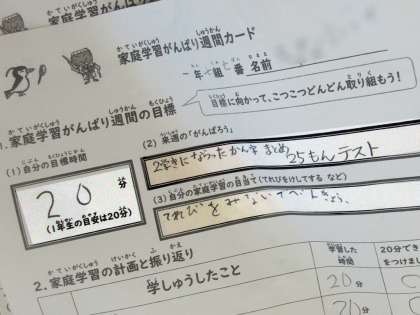 家庭学習がんばり週間カード
年 組 番 名前
目標に向かって、こつこつどんどん取り組もう!
1.家庭学習がんばり週間の目標
(1)自分の目標時間
20分
(1年生の目安は20分)
(2)来週の「がんばろう」
2学きになったかん字まとめ25もんテスト
(3)自分の家庭学習の目当て(てれびをけしてする など)
てれびをみないでべんきょう
2.家庭学習の計画と振り返り
学しゅうしたこと
学習した
時間
20分でき
をつけまし
20分
20分